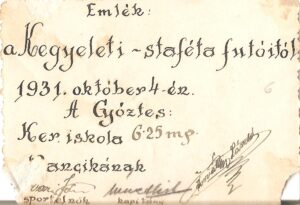 Emlék:
a Kegyeleti-staféta futóitól
1931. október 4-én.
A Győztes:
Ker. iskola 6·25 mp.
Rangikának
sportelnök kapitány
6